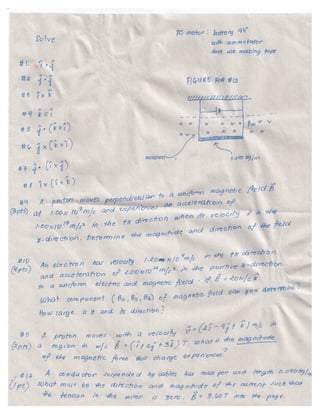 Solve
DC motor: battery 9V
with commutator
does use masking tape
#1. î · ĵ
#2 ĵ · ĵ
#3 î × k̂
#4 k̂ × î
#5 ĵ · (k̂ × î)
#6 ĵ × (k̂ × î)
#7 ĵ · (î × ĵ)
#8 î × (î × k̂)
FIGURE FOR #12
#9 A proton moves perpendicular to a uniform magnetic field B
(3pts) at 1.00×10⁷ m/s and experiences an acceleration of
1.00×10¹³ m/s² in the +x direction when its velocity is in the
z-direction. Determine the magnitude and direction of the field
#10 An electron has velocity 1.20 × 10⁴ m/s in the +x direction
(4pts) and acceleration of 2.00×10¹² m/s² in the positive z-direction
in a uniform electric and magnetic field. if E = 20N/C
What component (Bx, By, Bz) of magnetic field can you determine?
How large is it and its direction?
#11 A proton moves with a velocity v = (2î - 4ĵ + k̂) m/s in
(2pts) a region in w/c B = (î + 2ĵ - 3k̂) T. what is the magnitude
of the magnetic force this charge experiences?
#12 A conductor suspended by cables has mass per unit length 0.040 kg/m
(1pt) what must be the direction and magnitude of the current such that
the tension in the wires is zero. B = 3.60T into the page.